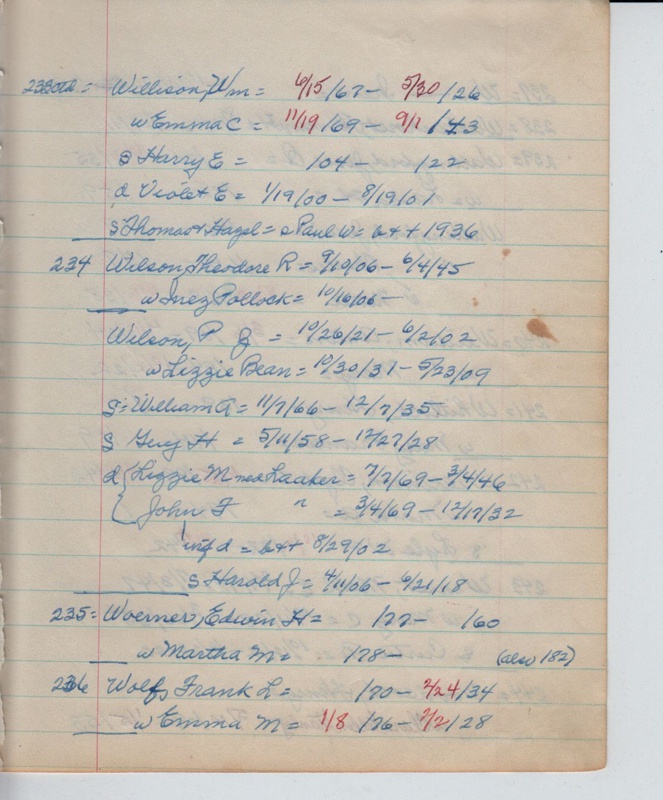 233 Willison, Wm = 6/15/67 - 5/30/26
w Emma C = 11/19/69 - 9/1/43
s Harry E = /04 - /22
d Violet E = 1/19/00 - 8/19/01
s Thomas + Hazel = s Paul W = b++ 1936
234 Wilson, Theodore R = 9/10/06 - 6/4/45
w Inez Pollock = 10/16/06 -
Wilson, P J = 10/26/21 - 6/2/02
w Lizzie Bean = 10/30/31 - 5/23/09
s = William A = 11/7/66 - 12/7/35
s Guy H = 5/11/58 - 12/27/28
d { Lizzie M Laaker = 7/7/69 - 3/4/46
{ John F " = 3/4/69 - 12/17/32
inf d = b++ 8/29/02
s Harold J = 4/11/06 - 6/21/18
235 = Woerner, Edwin H = /77 - /60
w Martha M = /78 - (also 182)
236 Wolf, Frank L = /70 - 2/24/34
w Emma M = 1/8/76 - 2/2/28